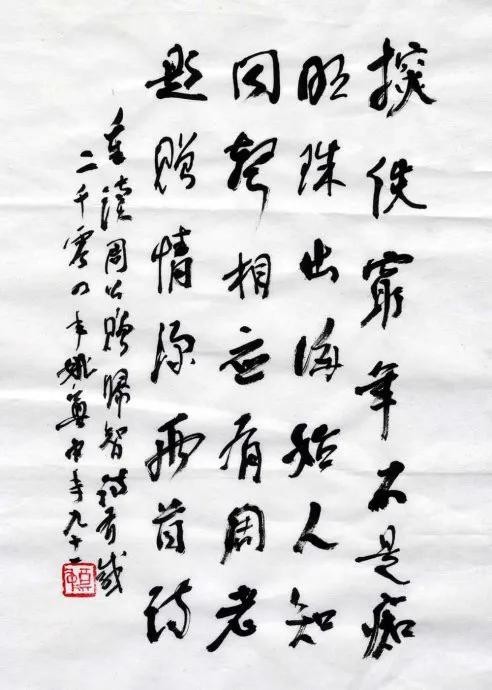 探佚窮年不是痴
明珠出海始人知
同聲相应有周老
題贈情深兩首詩
重讀周公贈歸智詩有感
二千零四年姚奠中年九十二